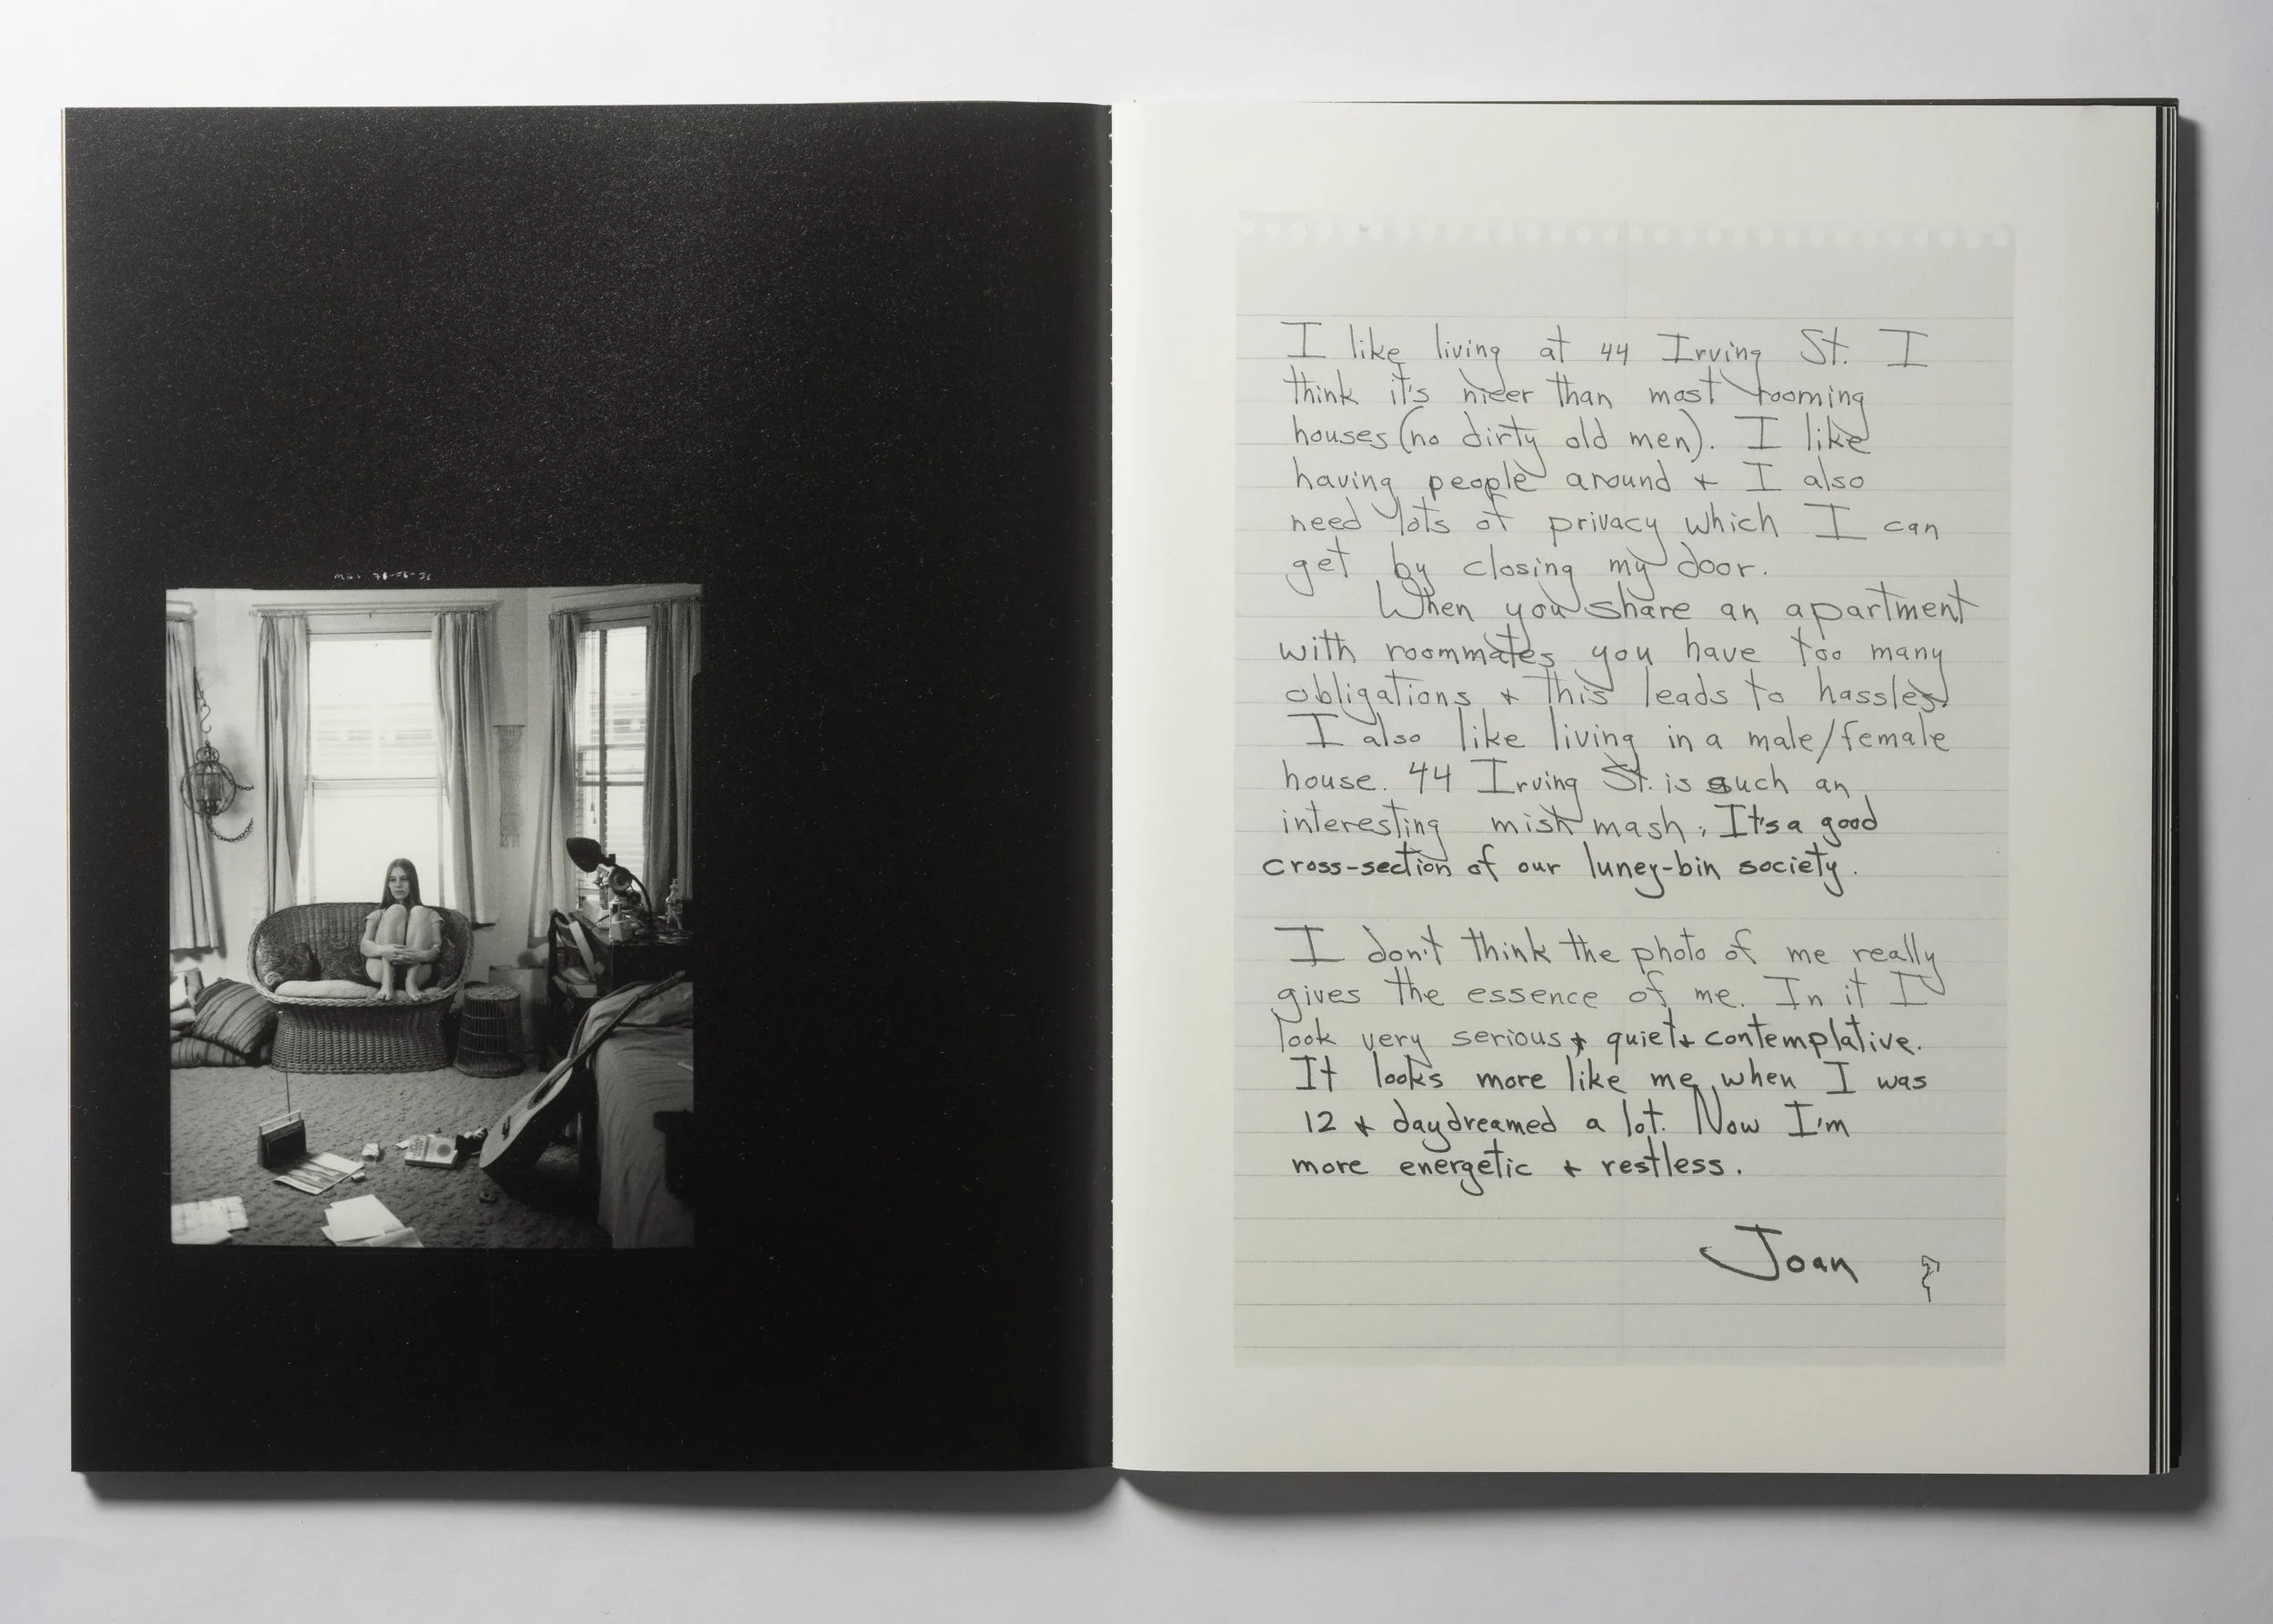 I like living at 44 Irving St. I
think it's nicer than most rooming
houses (no dirty old men). I like
having people around + I also
need lots of privacy which I can
get by closing my door.
When you share an apartment
with roommates you have too many
obligations + this leads to hassles.
I also like living in a male/female
house. 44 Irving St. is such an
interesting mish mash; It's a good
cross-section of our luney-bin society.
I don't think the photo of me really
gives the essence of me. In it I
look very serious + quiet + contemplative.
It looks more like me when I was
12 + daydreamed a lot. Now I'm
more energetic + restless.
Joan